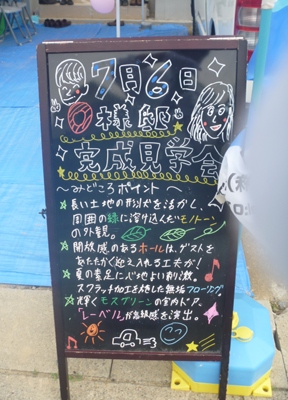 7月6日
O様邸
完成見学会
〜みどころポイント〜
☆長い土地の形状を活かし、
周囲の緑に溶け込んだモノトーン
の外観。
☆開放感のあるホールは、ゲストを
あたたかく迎え入れる工夫が！
☆夏の素足に心地よい刺激。
スクラッチ加工を施した無垢フローリング。
☆輝くモスグリーンの室内ドア。
「レーベル」が高級感を演出。